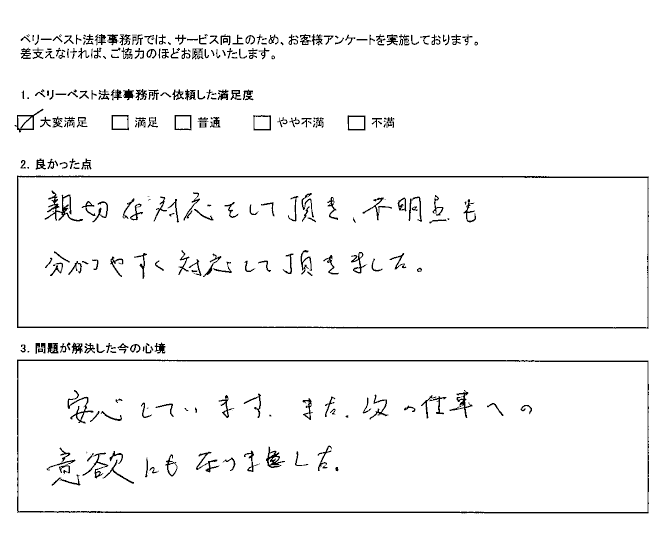 ベリーベスト法律事務所では、サービス向上のため、お客様アンケートを実施しております。
差支えなければ、ご協力のほどお願いいたします。
1. ベリーベスト法律事務所へ依頼した満足度
大変満足 満足 普通 やや不満 不満
2. 良かった点
親切な対応をして頂き、不明点も
分かりやすく対応して頂きました。
3. 問題が解決した今の心境
安心しています。また、次の仕事への
意欲にもなりました。